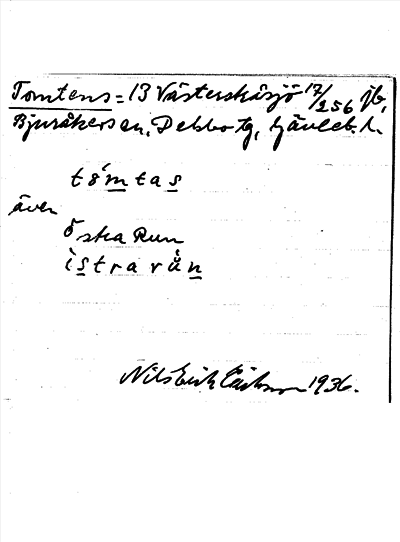 Tomtens = 13 Västerskäsjö 17/256 jb,
Bjuråkers sn, Delsbo tg, Gävleb. l.
tómtas
även
Östra Run
ìstrarún
Nils Erik Eriksson 1936.